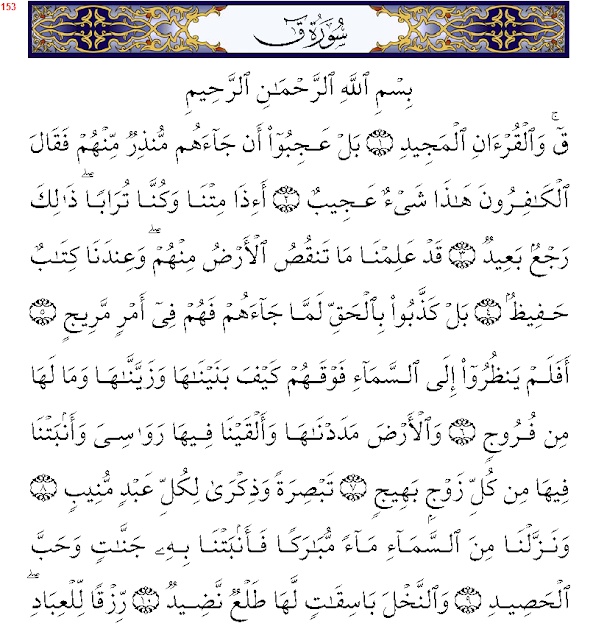 153
سُورَةُ قٓ
بِسْمِ ٱللَّهِ ٱلرَّحْمَـٰنِ ٱلرَّحِيمِ
قٓ ۚ وَٱلْقُرْءَانِ ٱلْمَجِيدِ ﴿١﴾ بَلْ عَجِبُوٓا۟ أَن جَآءَهُم مُّنذِرٌ مِّنْهُمْ فَقَالَ
ٱلْكَـٰفِرُونَ هَـٰذَا شَىْءٌ عَجِيبٌ ﴿٢﴾ أَءِذَا مِتْنَا وَكُنَّا تُرَابًا ۖ ذَٰلِكَ
رَجْعٌۢ بَعِيدٌ ﴿٣﴾ قَدْ عَلِمْنَا مَا تَنقُصُ ٱلْأَرْضُ مِنْهُمْ ۖ وَعِندَنَا كِتَـٰبٌ
حَفِيظٌۢ ﴿٤﴾ بَلْ كَذَّبُوا۟ بِٱلْحَقِّ لَمَّا جَآءَهُمْ فَهُمْ فِىٓ أَمْرٍ مَّرِيجٍ ﴿٥﴾
أَفَلَمْ يَنظُرُوٓا۟ إِلَى ٱلسَّمَآءِ فَوْقَهُمْ كَيْفَ بَنَيْنَـٰهَا وَزَيَّنَّـٰهَا وَمَا لَهَا
مِن فُرُوجٍ ﴿٦﴾ وَٱلْأَرْضَ مَدَدْنَـٰهَا وَأَلْقَيْنَا فِيهَا رَوَٰسِىَ وَأَنۢبَتْنَا
فِيهَا مِن كُلِّ زَوْجٍۭ بَهِيجٍ ﴿٧﴾ تَبْصِرَةً وَذِكْرَىٰ لِكُلِّ عَبْدٍ مُّنِيبٍ ﴿٨﴾
وَنَزَّلْنَا مِنَ ٱلسَّمَآءِ مَآءً مُّبَـٰرَكًا فَأَنۢبَتْنَا بِهِۦ جَنَّـٰتٍ وَحَبَّ
ٱلْحَصِيدِ ﴿٩﴾ وَٱلنَّخْلَ بَاسِقَـٰتٍ لَّهَا طَلْعٌ نَّضِيدٌ ﴿١٠﴾ رِّزْقًا لِّلْعِبَادِ ۖ